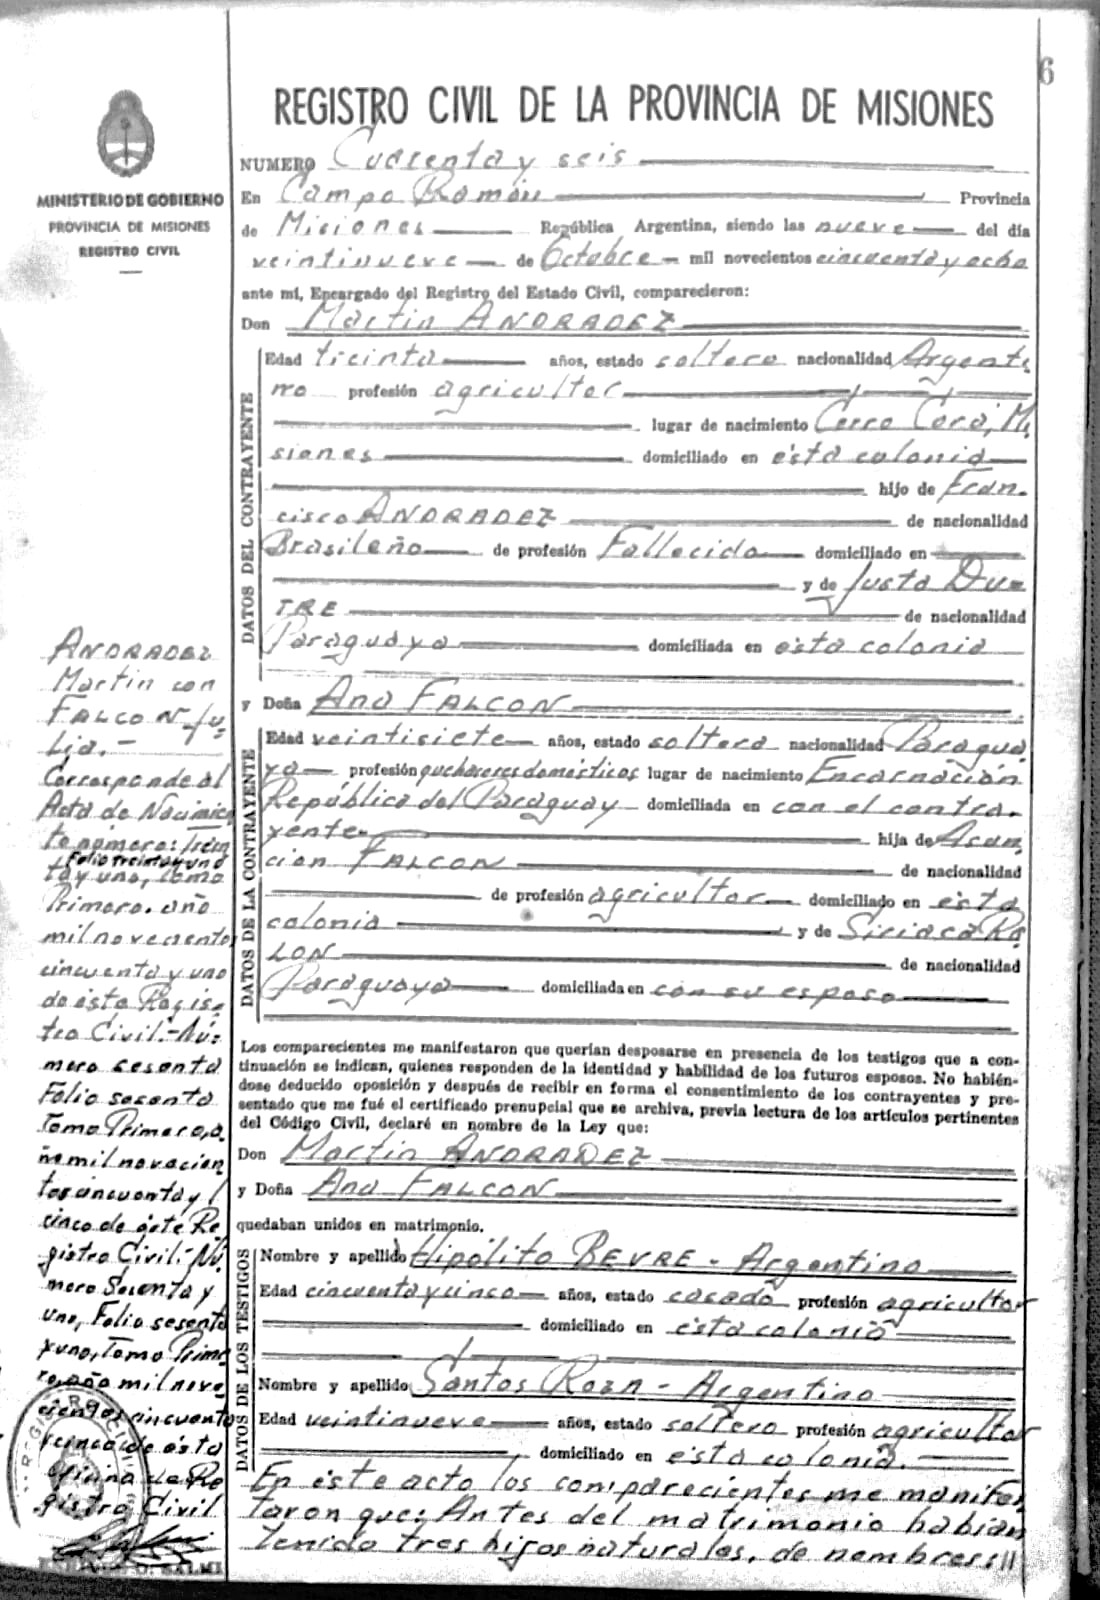 6
REGISTRO CIVIL DE LA PROVINCIA DE MISIONES
MINISTERIO DE GOBIERNO
PROVINCIA DE MISIONES
REGISTRO CIVIL
NUMERO Cuarenta y seis
En Campo Ramón Provincia
de Misiones República Argentina, siendo las nueve del día
veintinueve de Octubre mil novecientos cincuenta y ocho
ante mi, Encargado del Registro del Estado Civil, comparecieron:
Don Martin ANDRADEZ
DATOS DEL CONTRAYENTE
Edad treinta años, estado soltero nacionalidad Argenti
no profesión agricultor
lugar de nacimiento Cerro Corá, Mi
siones domiciliado en ésta colonia
hijo de Fran-
cisco ANDRADEZ de nacionalidad
Brasileño de profesión Fallecido domiciliado en
y de Justa DU=
TRE de nacionalidad
Paraguaya domiciliada en ésta colonia
y Doña Ana FALCON
DATOS DE LA CONTRAYENTE
Edad veintisiete años, estado soltera nacionalidad Paragua
ya profesión quehaceres domésticos lugar de nacimiento Encarnación
República del Paraguay domiciliada en con el contra-
yente- hija de Asun
cion FALCON de nacionalidad
de profesión agricultor domiciliado en ésta
colonia y de Siriaca RO
LON de nacionalidad
Paraguaya domiciliada en con su esposo
Los comparecientes me manifestaron que querían desposarse en presencia de los testigos que a con-
tinuación se indican, quienes responden de la identidad y habilidad de los futuros esposos. No habién-
dose deducido oposición y después de recibir en forma el consentimiento de los contrayentes y pre-
sentado que me fué el certificado prenupcial que se archiva, previa lectura de los artículos pertinentes
del Código Civil, declaré en nombre de la Ley que:
Don Martin ANDRADEZ
y Doña Ana FALCON
quedaban unidos en matrimonio.
DATOS DE LOS TESTIGOS
Nombre y apellido Hipólito BEVRE - Argentino
Edad cincuenta y cinco años, estado casado profesión agricultor
domiciliado en ésta colonia
Nombre y apellido Santos ROZA - Argentino
Edad veintinueve años, estado soltero profesión agricultor
domiciliado en ésta colonia.
En éste acto los comparecientes me manifes
taron que: Antes del matrimonio habian
tenido tres hijos naturales, de nombres://
ANDRADEZ
Martin con
FALCON Ju
lia.-
Corresponde al
Acta de Nacimien
to número: trein
Folio treinta y uno
ta y uno, tomo
Primero, año
mil novecientos
cincuenta y uno
de ésta Regis-
tro Civil.- Nú-
mero sesenta
Folio sesenta
Tomo Primero, a
ño mil novecien
tos cincuenta y
cinco de éste Re
gistro Civil.- Nú-
mero Sesenta y
uno, Folio sesenta
y uno, Tomo Prime
ro, año mil nove
cientos cincuenta
y cinco de ésta
oficina de Re
gistro Civil